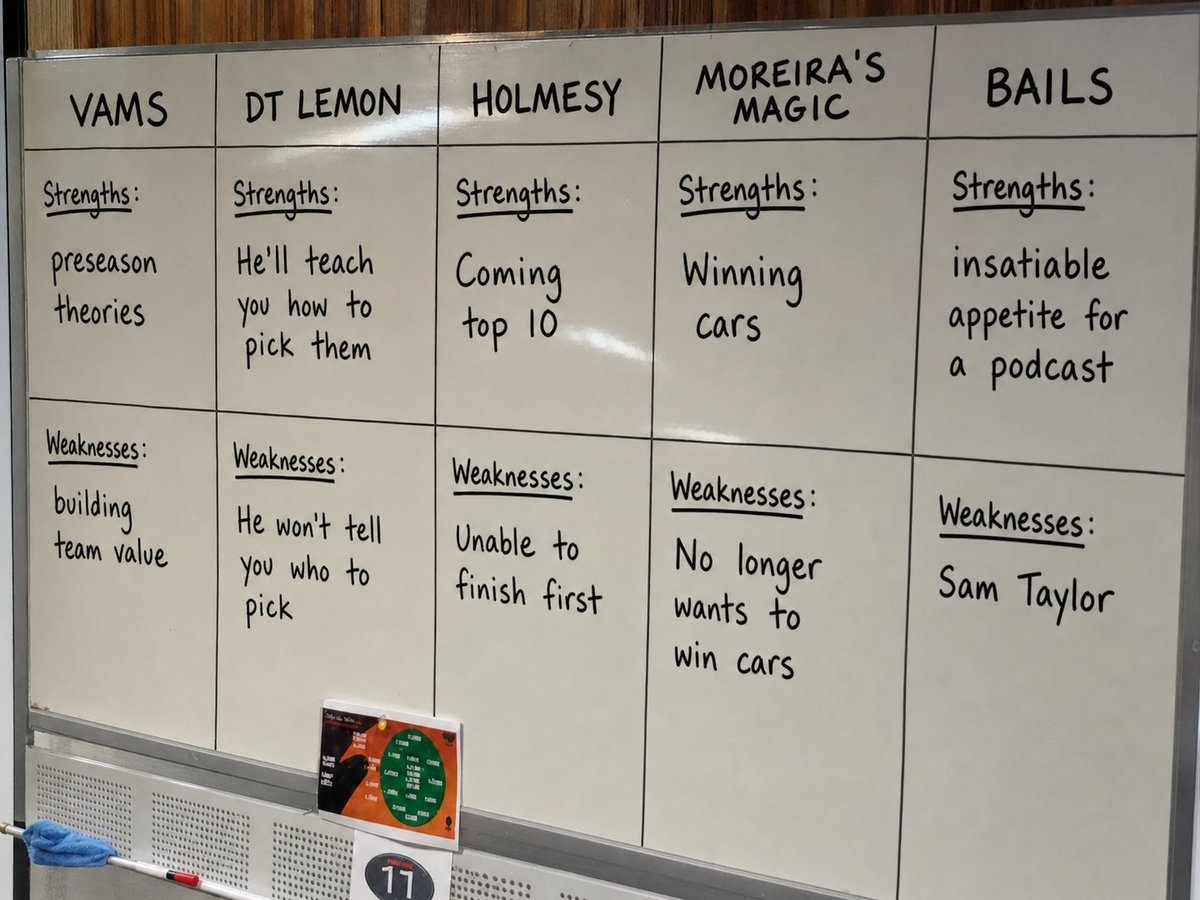 VAMS
DT LEMON
HOLMESY
MOREIRA'S
MAGIC
BAILS
Strengths:
preseason
theories
Strengths:
He'll teach
you how to
pick them
Strengths:
Coming
top 10
Strengths:
Winning
cars
Strengths:
insatiable
appetite for
a podcast
Weaknesses:
building
team value
Weaknesses:
He won't tell
you who to
pick
Weaknesses:
Unable to
finish first
Weaknesses:
No longer
wants to
win cars
Weaknesses:
Sam Taylor
11